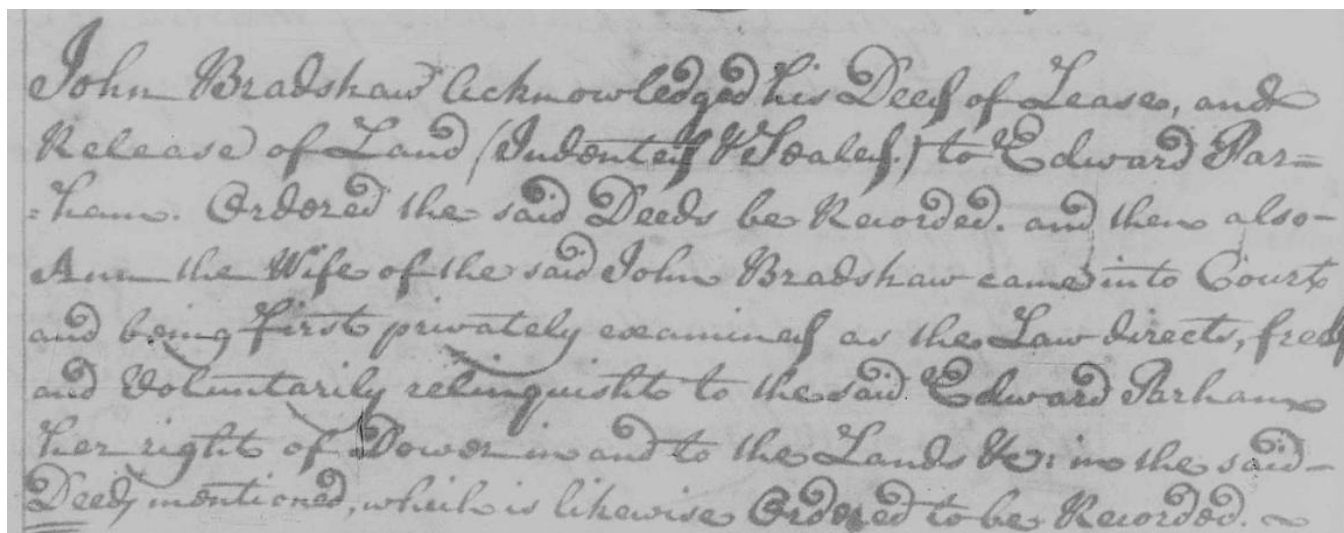 John Bradshaw Acknowledged his Deeds of Lease, and
Release of Land (Indented & Sealed.) to Edward Par=
=ham. Ordered the said Deeds be Recorded. and then also
Ann the Wife of the said John Bradshaw came into Court
and being first privately examined as the Law directs, freely
and Voluntarily relinquisht to the said Edward Parham
her right of Dower in and to the Lands &c: in the said
Deeds mentioned, which is likewise Ordered to be Recorded. ~